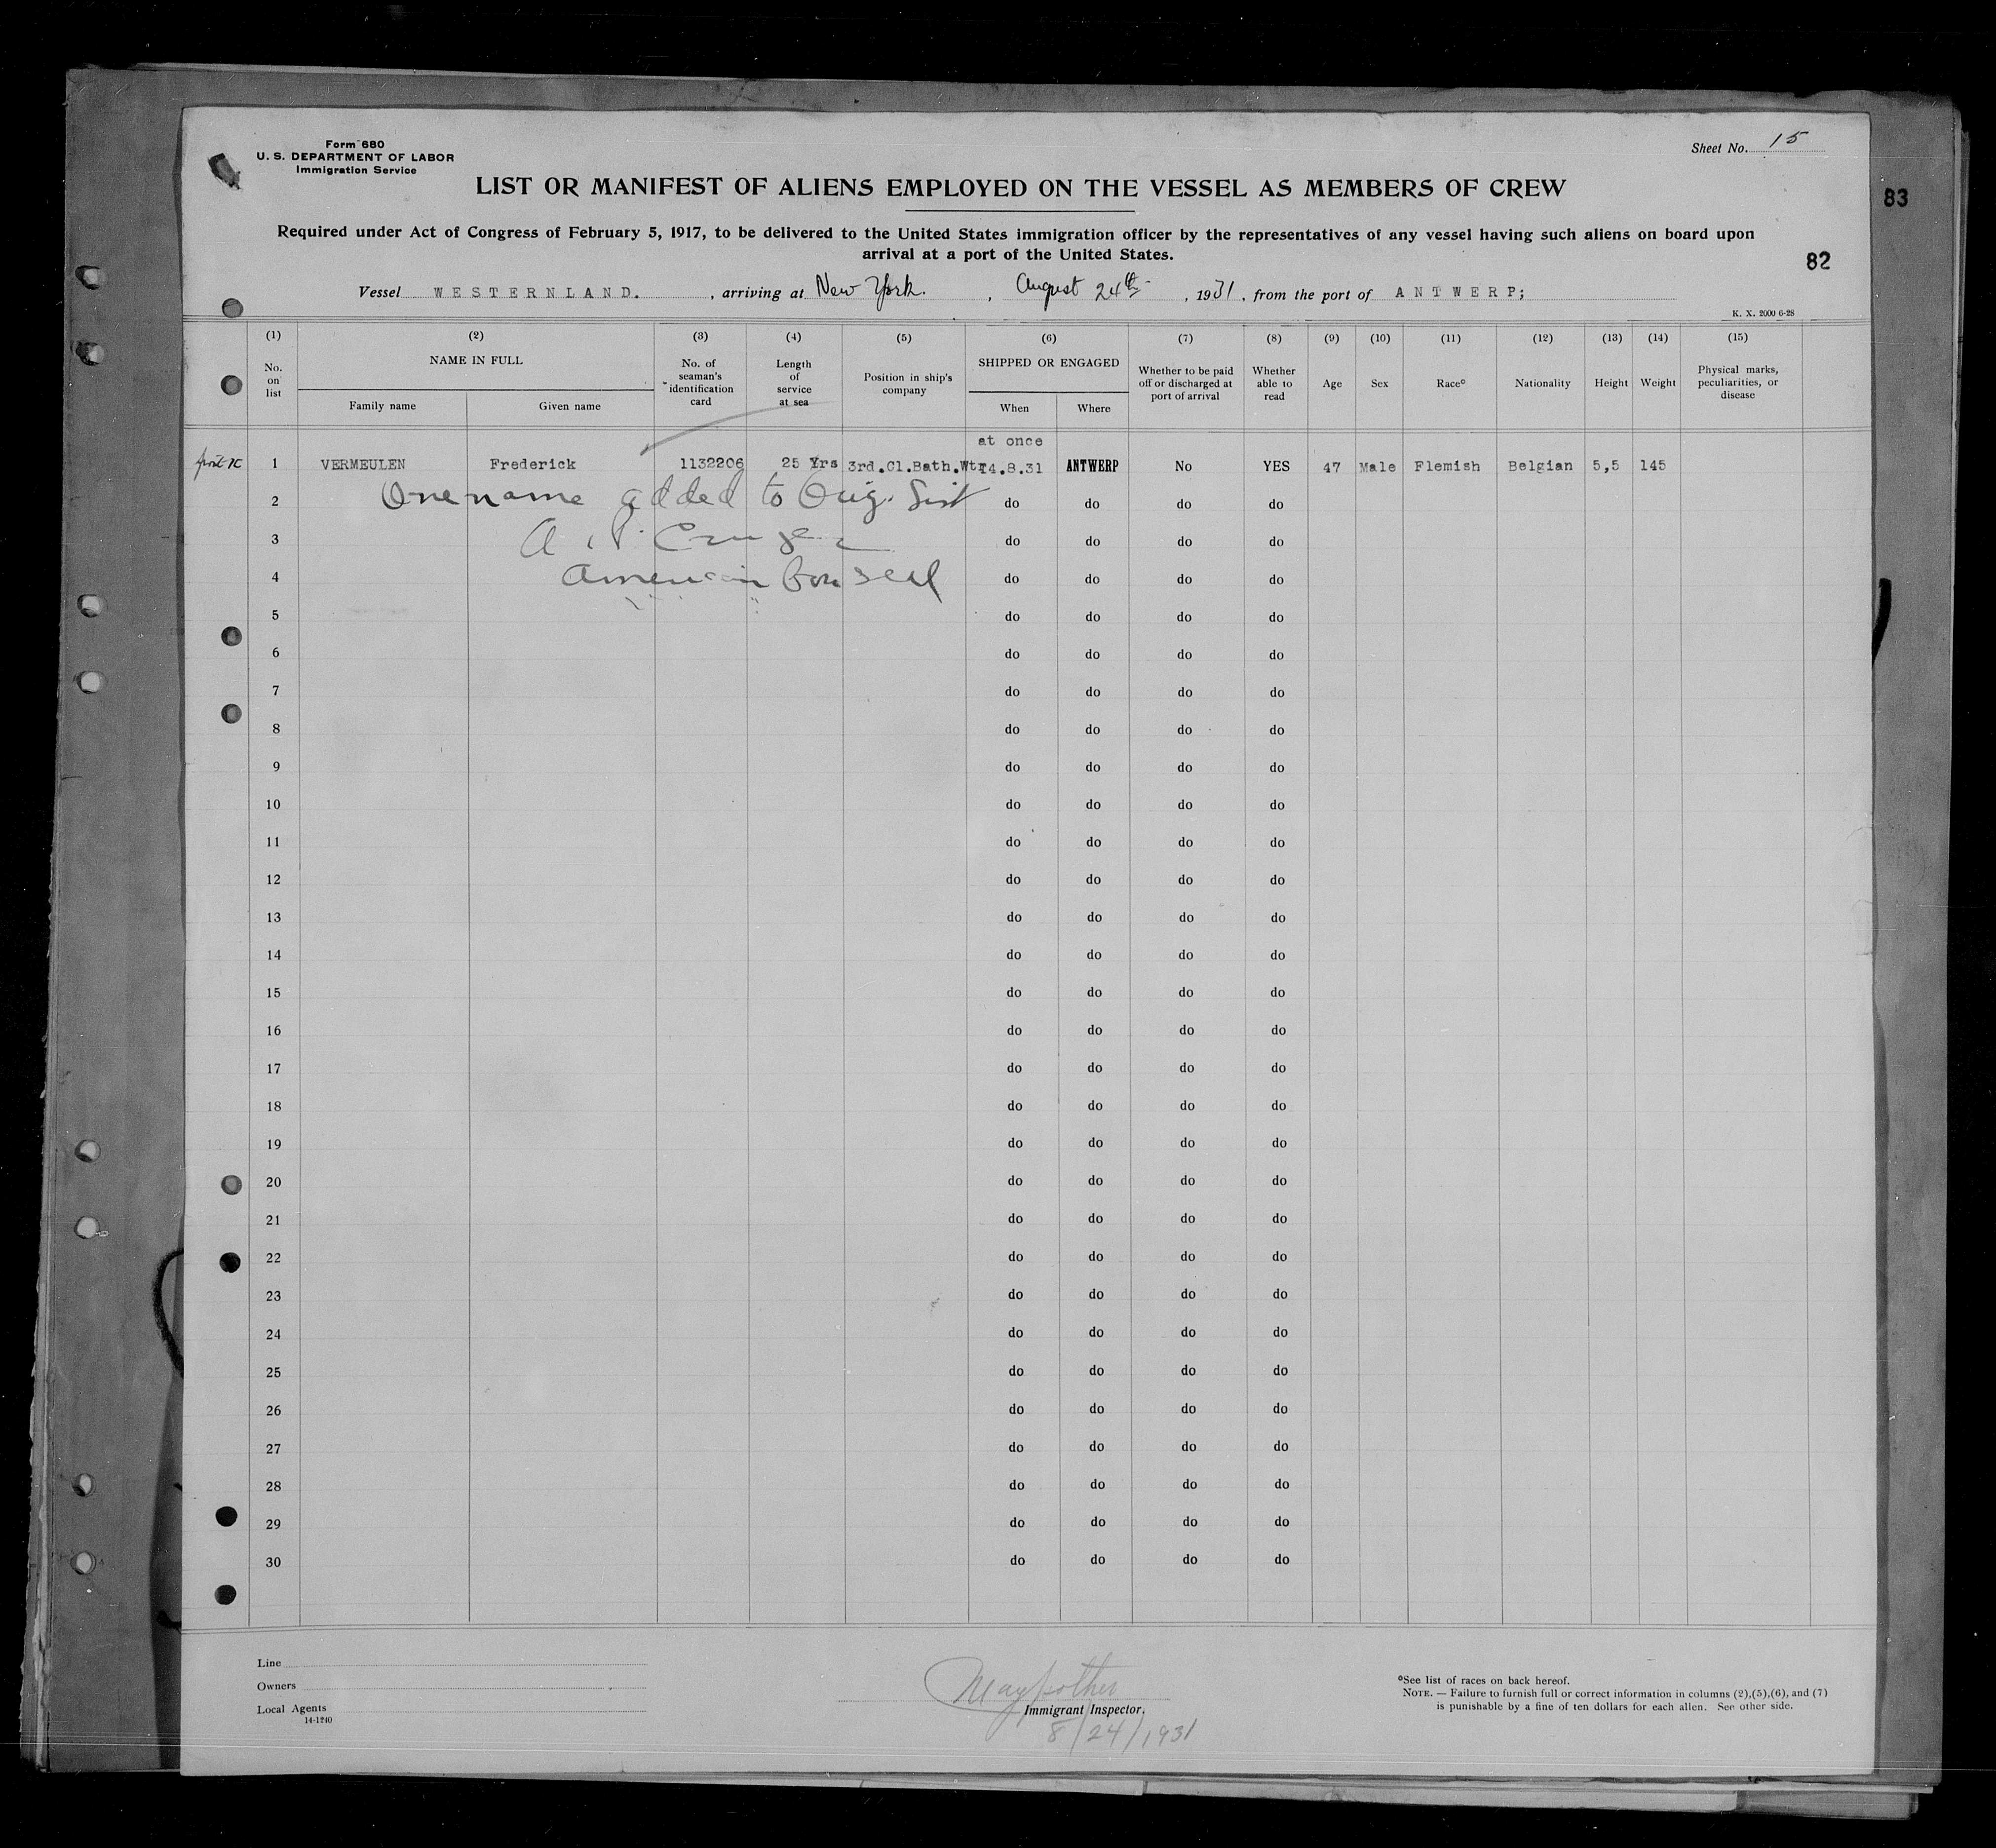 Form 680
U. S. DEPARTMENT OF LABOR
Immigration Service
Sheet No. 15
LIST OR MANIFEST OF ALIENS EMPLOYED ON THE VESSEL AS MEMBERS OF CREW
83
Required under Act of Congress of February 5, 1917, to be delivered to the United States immigration officer by the representatives of any vessel having such aliens on board upon
arrival at a port of the United States.
82
Vessel WESTERNLAND. , arriving at New York. , August 24th , 1931 , from the port of ANTWERP;
K. X. 2000 6-28
(1) (2) (3) (4) (5) (6) (7) (8) (9) (10) (11) (12) (13) (14) (15)
No. on list NAME IN FULL Family name Given name No. of seaman's identification card Length of service at sea Position in ship's company SHIPPED OR ENGAGED When Where Whether to be paid off or discharged at port of arrival Whether able to read Age Sex Race* Nationality Height Weight Physical marks, peculiarities, or disease
at once
1 VERMEULEN Frederick 1132206 25 Yrs 3rd.Cl.Bath.Wtr 14.8.31 ANTWERP No YES 47 Male Flemish Belgian 5,5 145
2 One name added to Orig. List do do do do
3 do do do do
4 American Consul do do do do
5 do do do do
6 do do do do
7 do do do do
8 do do do do
9 do do do do
10 do do do do
11 do do do do
12 do do do do
13 do do do do
14 do do do do
15 do do do do
16 do do do do
17 do do do do
18 do do do do
19 do do do do
20 do do do do
21 do do do do
22 do do do do
23 do do do do
24 do do do do
25 do do do do
26 do do do do
27 do do do do
28 do do do do
29 do do do do
30 do do do do
Line
Owners
Local Agents
14-1240
Immigrant Inspector.
8/24/1931
*See list of races on back hereof.
NOTE. — Failure to furnish full or correct information in columns (2),(5),(6), and (7)
is punishable by a fine of ten dollars for each alien. See other side.